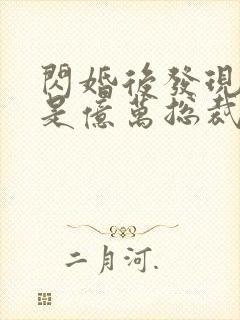 閃婚後發現
是億萬總裁
二月河.